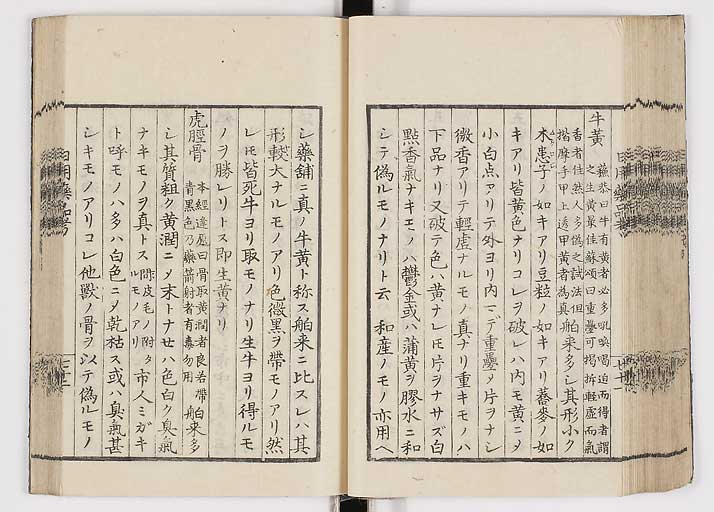 牛黄 蘓恭曰牛有黄者必多吼喚喝迫而得者謂
之生黄最佳蘓頌曰重疊可掲拆輕虚而氣
香者佳然人多偽之試法但
揩摩手甲上透甲黄者為真 舶来多シ其形小ク
木患子ノ如キアリ豆粒ノ如キアリ蕎麥ノ如
キアリ皆黄色ナリコレヲ破レハ内モ黄ニ〆
小白点アリテ外ヨリ内ニデ重疊〆片ヲナシ
微香アリテ輕虚ナルモノ真ナリ重キモノハ
下品ナリ又破テ色ハ黄ナレ𪜈片ヲナサズ白
點香氣ナキモノハ鬱金或ハ蒲黄ヲ膠水ニ和
シテ偽ルモノナリト云 和産ノモノ亦用ヘ
シ藥舗ニ真ノ牛黄ト称ス舶来ニ比スレハ其
形較大ナルモノアリ色微黒ヲ帶モノアリ然
レ𪜈皆死牛ヨリ取モノナリ生牛ヨリ得ルモ
ノヲ勝レリトス即生黄ナリ
虎脛骨 本經逢原曰骨取黄潤者良若帶
青黒色乃藥箭射者有毒勿用 舶来多
シ其質粗ク黄潤ニ〆末トナセハ色白ク臭氣
ナキモノヲ真トス 皮毛ノ附タ
ルモノアリ 市人ミガキ
ト呼モノハ多ハ白色ニ〆乾枯ス或ハ臭氣甚
シキモノアリコレ他獸ノ骨ヲ以テ偽ルモノ